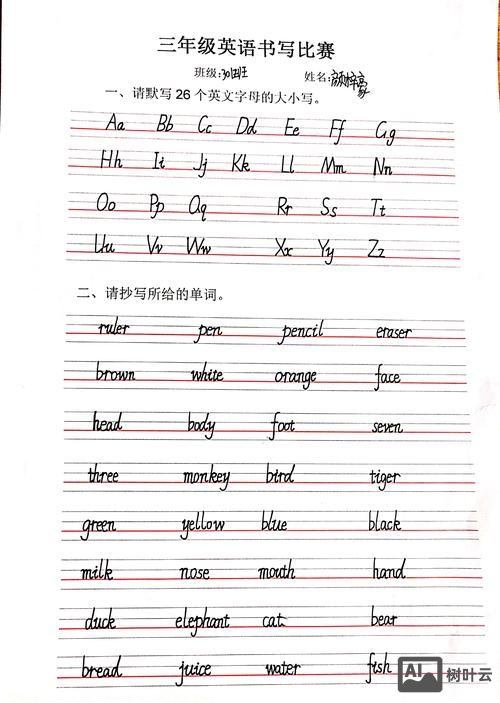 三年级英语书写比赛
班级:301班 姓名:
一、请默写 26 个英文字母的大小写。
Aa Bb Cc Dd Ee Ff Gg
Hh Ii Jj Kk Ll Mm Nn
Oo Pp Qq Rr Ss Tt
Uu Vv Ww Xx Yy Zz
二、请抄写所给的单词。
ruler pen pencil eraser
brown white orange face
head body foot seven
three monkey bird tiger
green yellow blue black
milk nose mouth hand
duck elephant cat bear
bread juice water fish
AI 树叶云